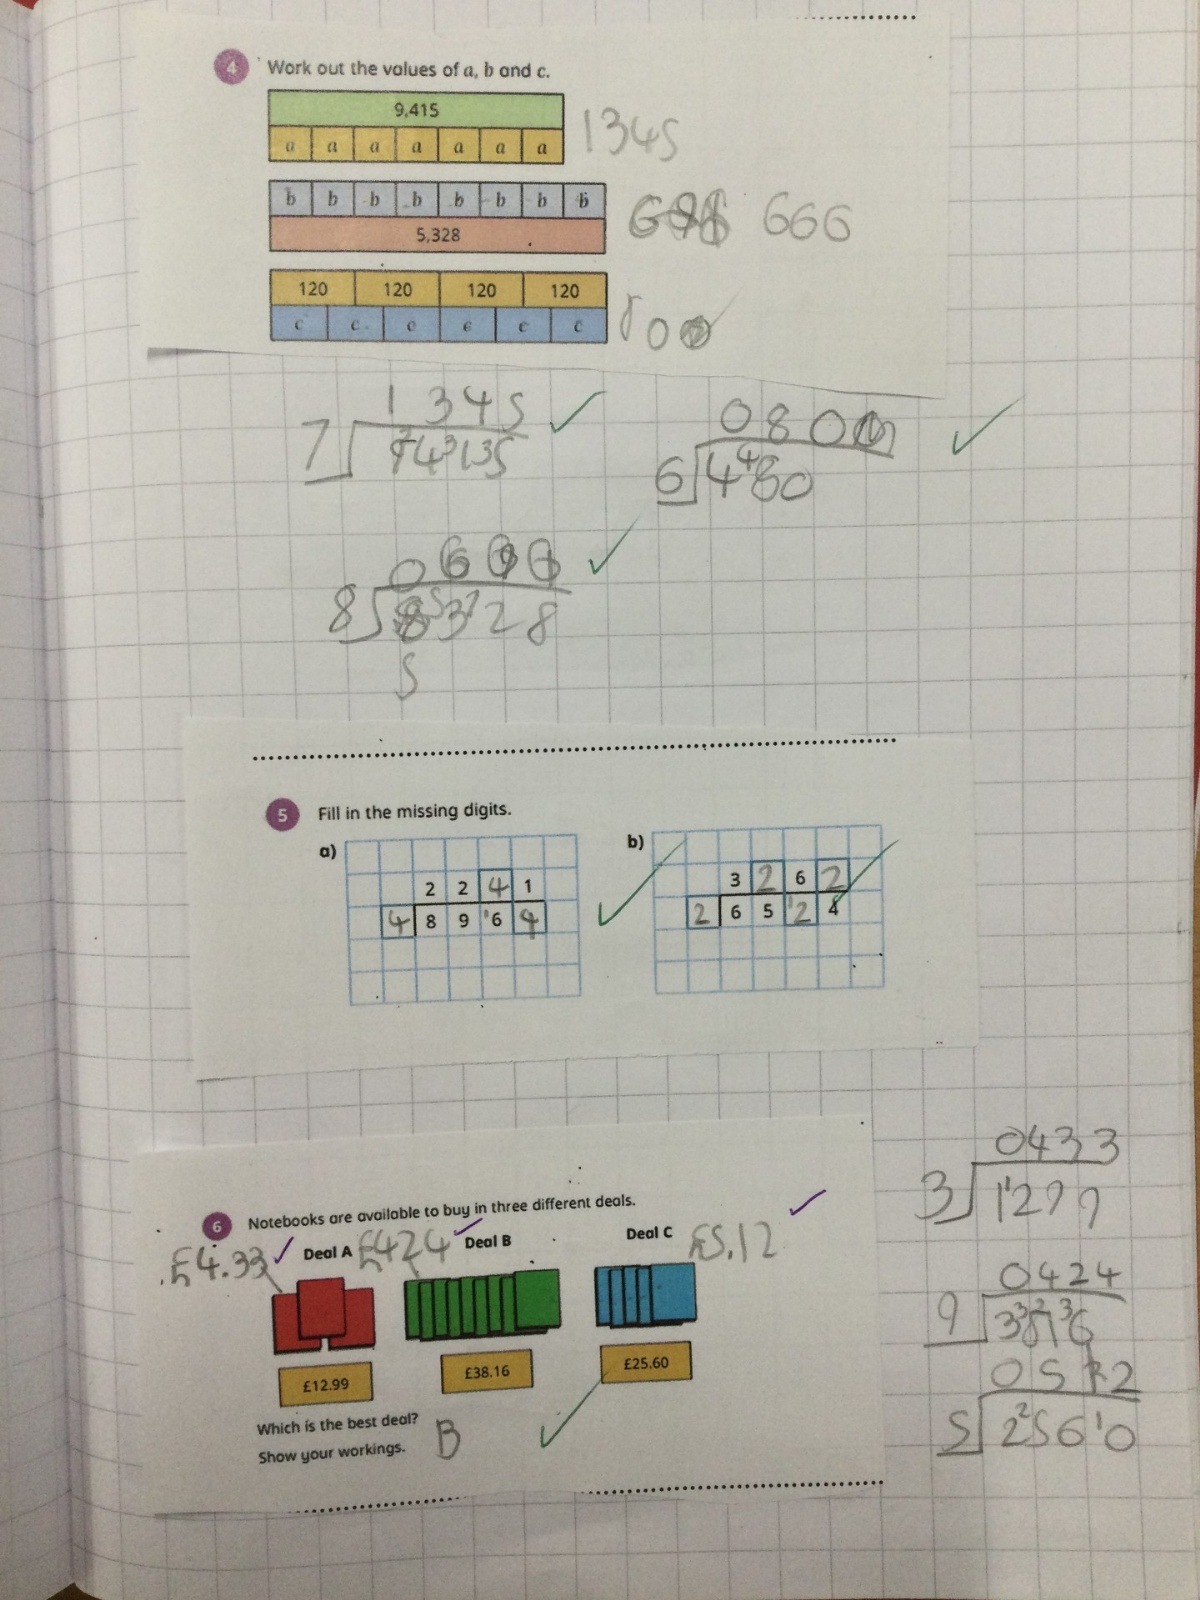 4 Work out the values of a, b and c.
9,415
a a a a a a a
1345
b b b b b b b b
666
5,328
120 120 120 120
c c c c c c
1 3 4 5
7 9 ²4 ³1 ³5
0 8 0
6 4 ⁴8 0
0 6 6 6
8 ⁵3 ⁵2 8
5
5 Fill in the missing digits.
a)
2 2 4 1
4 8 9 ¹6 4
b)
3 2 6 2
2 6 5 ¹2 4
6 Notebooks are available to buy in three different deals.
£4.33 Deal A £424 Deal B Deal C £5.12
£12.99 £38.16 £25.60
Which is the best deal?
Show your workings. B
0433
3 1 ¹2 9 9
0424
9 3 ³8 ²1 ³6
0 5 1 2
5 2 ²5 6 ¹0